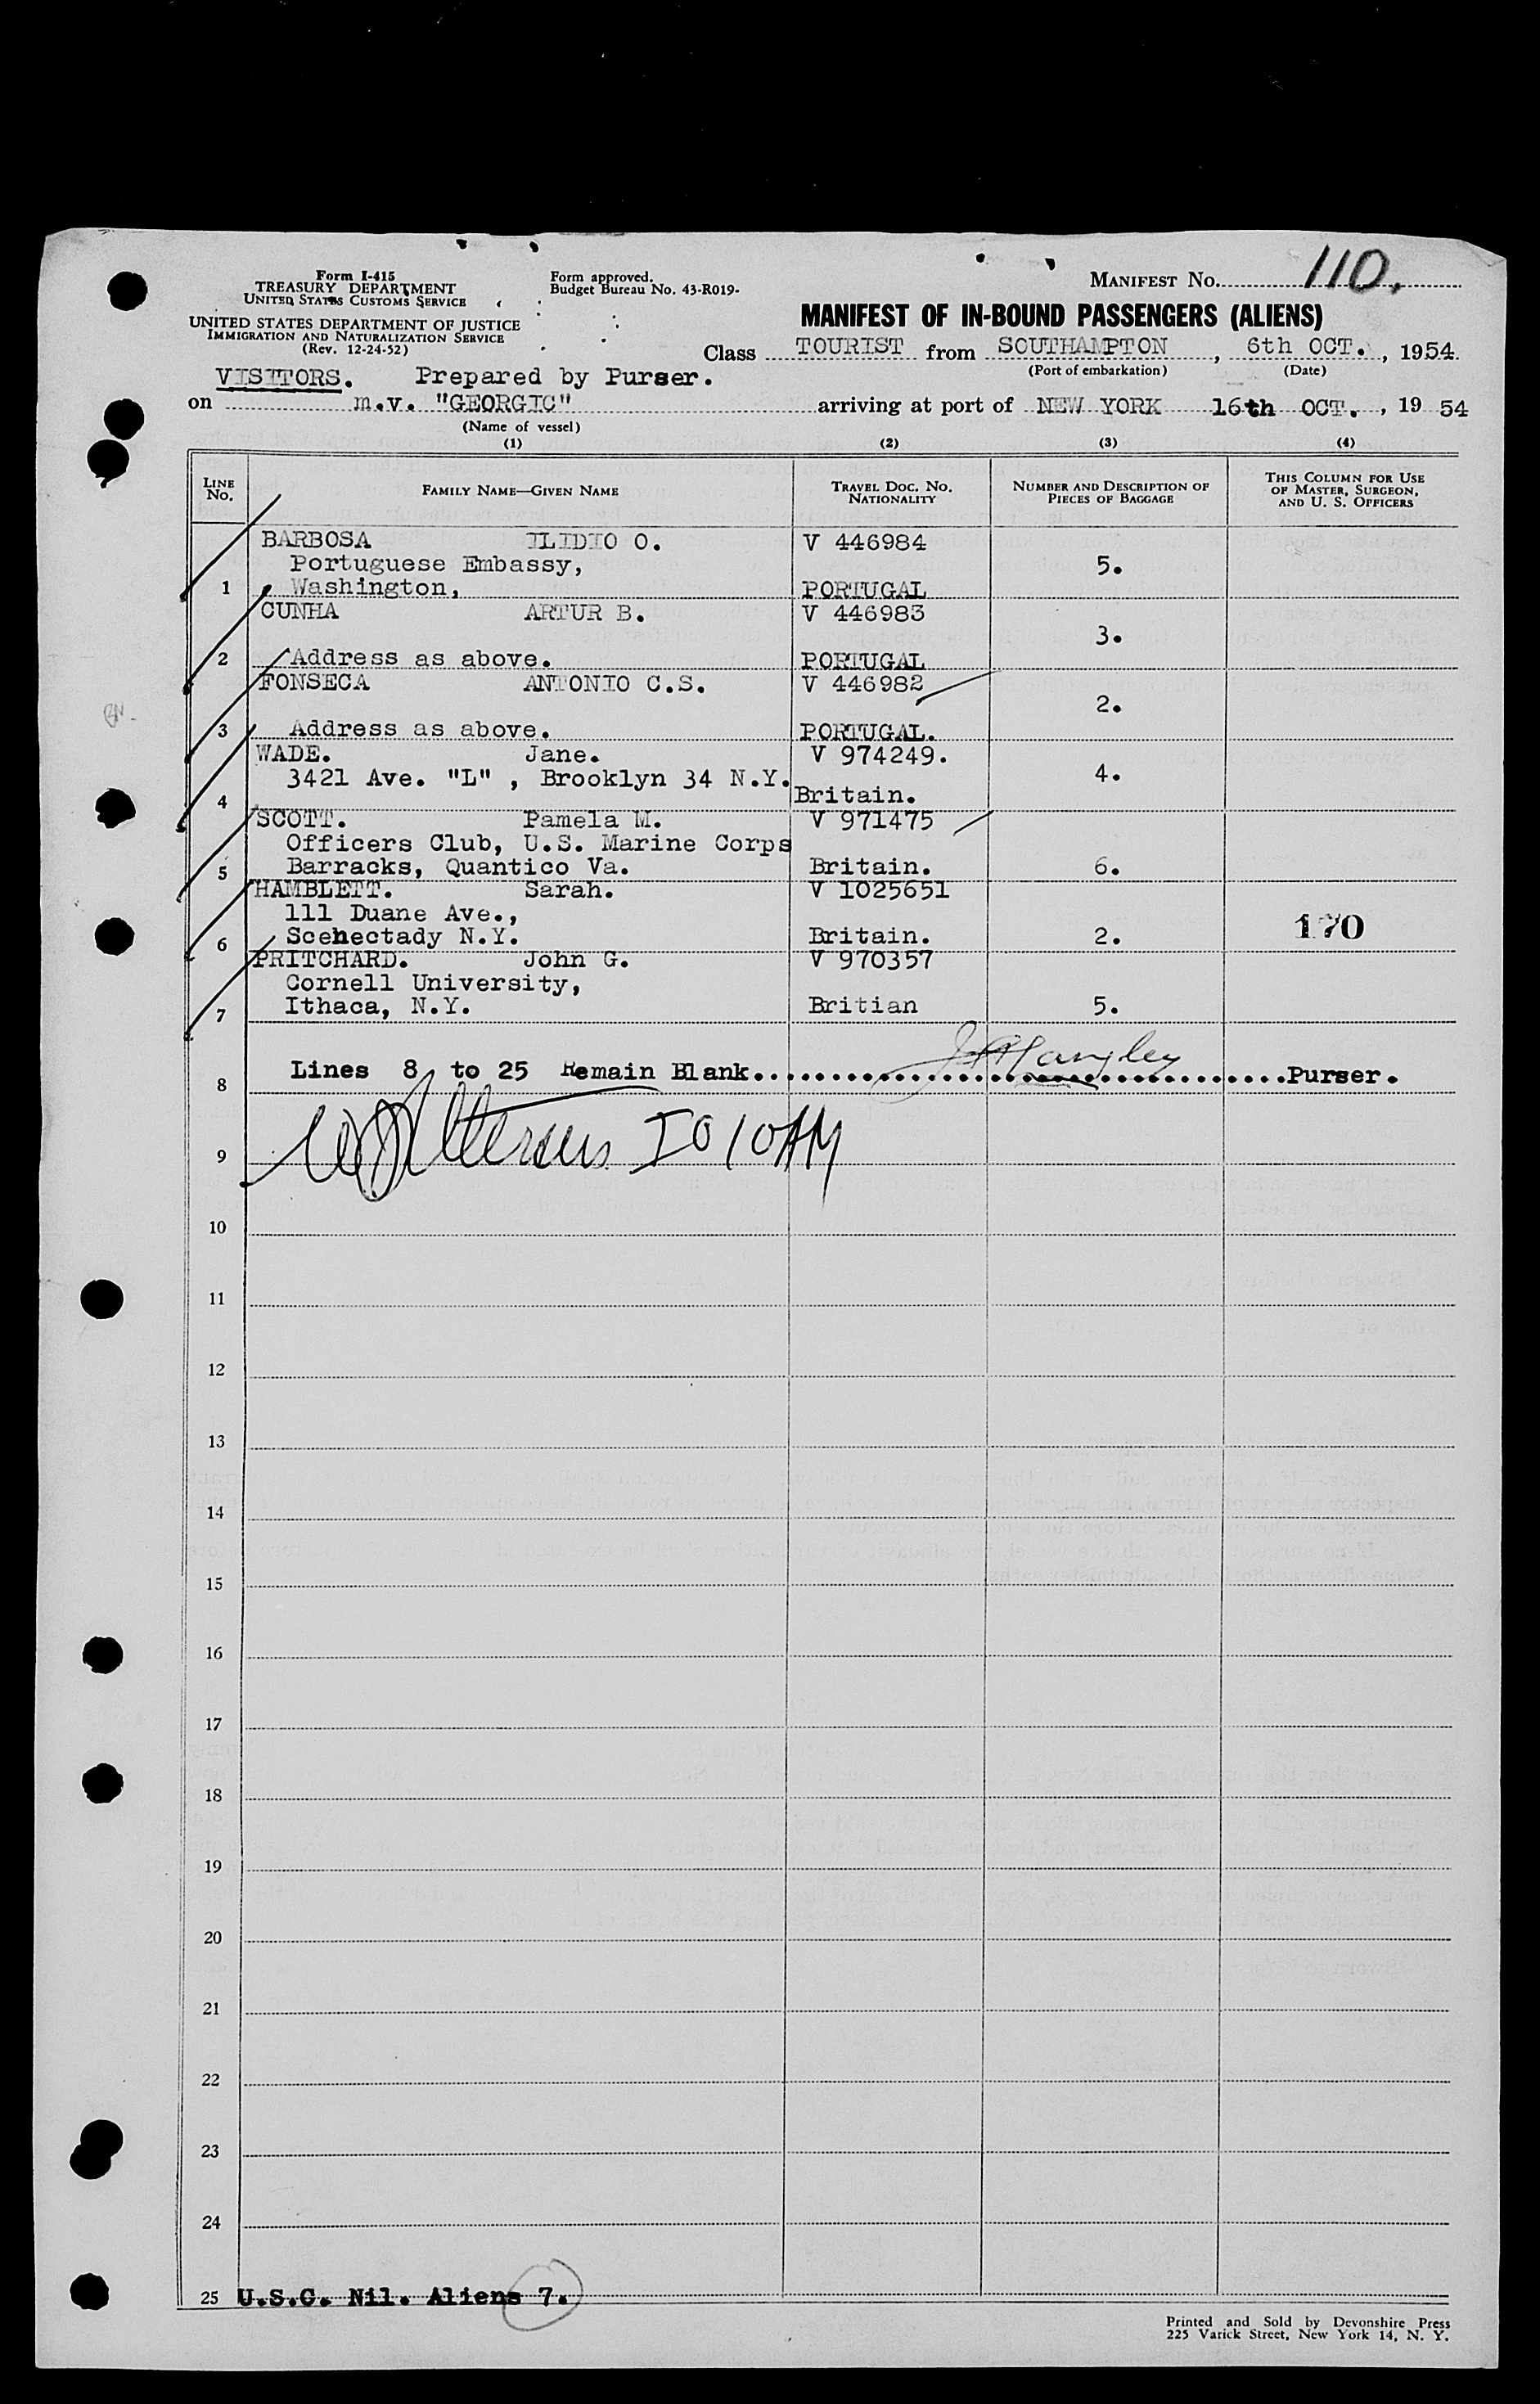 Form I-415
TREASURY DEPARTMENT
UNITED STATES CUSTOMS SERVICE
Form approved.
Budget Bureau No. 43-R019-
MANIFEST NO. 110.
UNITED STATES DEPARTMENT OF JUSTICE
IMMIGRATION AND NATURALIZATION SERVICE
(Rev. 12-24-52)
MANIFEST OF IN-BOUND PASSENGERS (ALIENS)
Class TOURIST from SOUTHAMPTON, 6th OCT., 1954.
(Port of embarkation) (Date)
VISITORS. Prepared by Purser.
on m.v. "GEORGIC" arriving at port of NEW YORK 16th OCT., 19 54
(Name of vessel)
(1) (2) (3) (4)
LINE NO. FAMILY NAME—GIVEN NAME TRAVEL DOC. NO. NATIONALITY NUMBER AND DESCRIPTION OF PIECES OF BAGGAGE THIS COLUMN FOR USE OF MASTER, SURGEON, AND U. S. OFFICERS
BARBOSA ILIDIO O. V 446984
Portuguese Embassy, 5.
1 Washington, PORTUGAL
CUNHA ARTUR B. V 446983
3.
2 Address as above. PORTUGAL
FONSECA ANTONIO C.S. V 446982
2.
3 Address as above. PORTUGAL.
WADE. Jane. V 974249.
3421 Ave. "L" , Brooklyn 34 N.Y. 4.
4 Britain.
SCOTT. Pamela M. V 971475
Officers Club, U.S. Marine Corps
5 Barracks, Quantico Va. Britain. 6.
HAMBLETT. Sarah. V 1025651
111 Duane Ave.,
6 Scehectady N.Y. Britain. 2. 170
PRITCHARD. John G. V 970357
Cornell University,
7 Ithaca, N.Y. Britian 5.
8 Lines 8 to 25 Remain Blank. J A Langley Purser.
9
10
11
12
13
14
15
16
17
18
19
20
21
22
23
24
25 U.S.C. Nil. Aliens 7.
Printed and Sold by Devonshire Press
225 Varick Street, New York 14, N. Y.